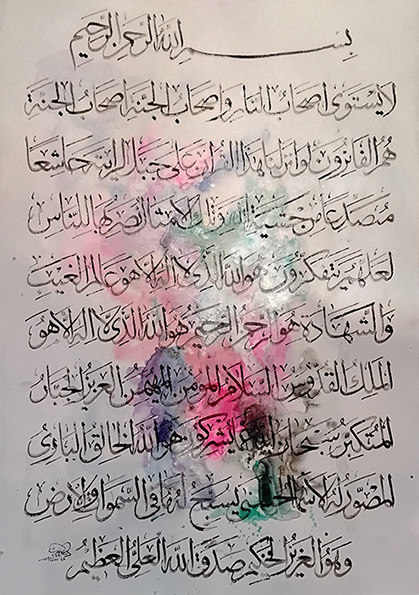 بسم الله الرحمن الرحيم
لا يستوى اصحاب النار و اصحاب الجنة اصحاب الجنة
هم الفائزون لو انزلنا هذا القرآن على جبل لرايته خاشعا
متصدعا من خشية الله و تلك الامثال نضربها للناس
لعلهم يتفكرون هو الله الذى لا اله الا هو عالم الغيب
والشهادة هو الرحمن الرحيم هو الله الذى لا اله الا هو
الملك القدوس السلام المؤمن المهيمن العزيز الجبار
المتكبر سبحان الله عما يشركون هو الله الخالق البارئ
المصور له الاسماء الحسنى يسبح له ما فى السموات والارض
وهو العزيز الحكيم صدق الله العلى العظيم